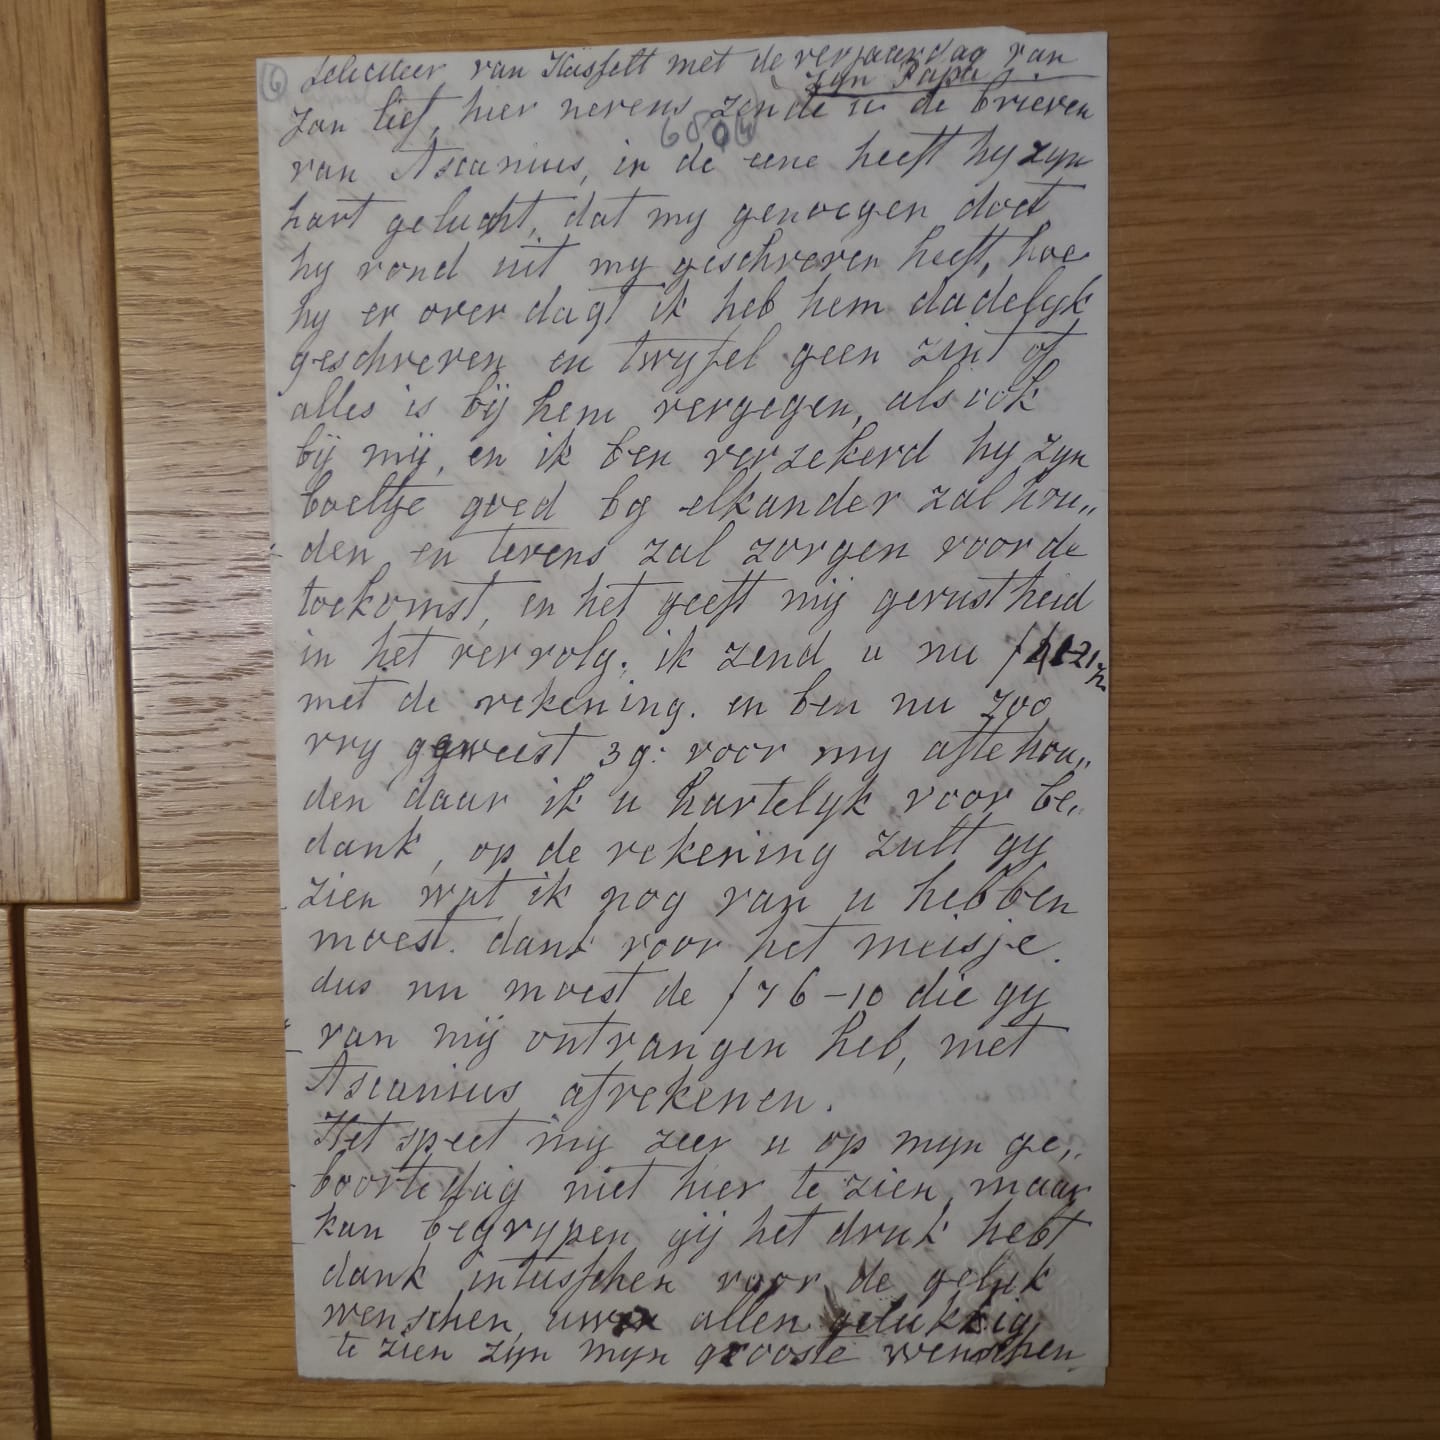 6
felicteer van Hasselt met de verjaardag van
zyn Papa
zoo lief, hier nevens zende u de brieven
6804
van Ascanius, in de eene heeft hy zyn
hart gelucht, dat my genoegen doet
hy rond uit my geschreven heeft, hoe
hy er over dagt ik heb hem dadelyk
geschreven en twyfel geen zint of
alles is bij hem vergegen, als ook
bij mij, en ik ben verzekerd hy zyn
boeltje goed by elkander zal hou„
den, en tevens zal zorgen voor de
toekomst, en het geeft mij gerustheid
in het vervolg. ik zend u nu f
met de rekening. en ben nu zoo
vry geweest 3g: voor my afte hou„
den daar ik u hartelyk voor be„
dank, op de rekening zult gy
zien wat ik nog van u hebben
moest. dank voor het meisje.
dus nu moest de f 76-10 die gy
van mij ontvangen heb, met
Ascanius afrekenen.
Het speet my zeer u op myn ge„
boortedag niet hier te zien, maar
kan begrypen gij het druk hebt
dank intusschen voor de geluk
wenschen, allen gelukkig
te zien zyn myn grooste wenschen